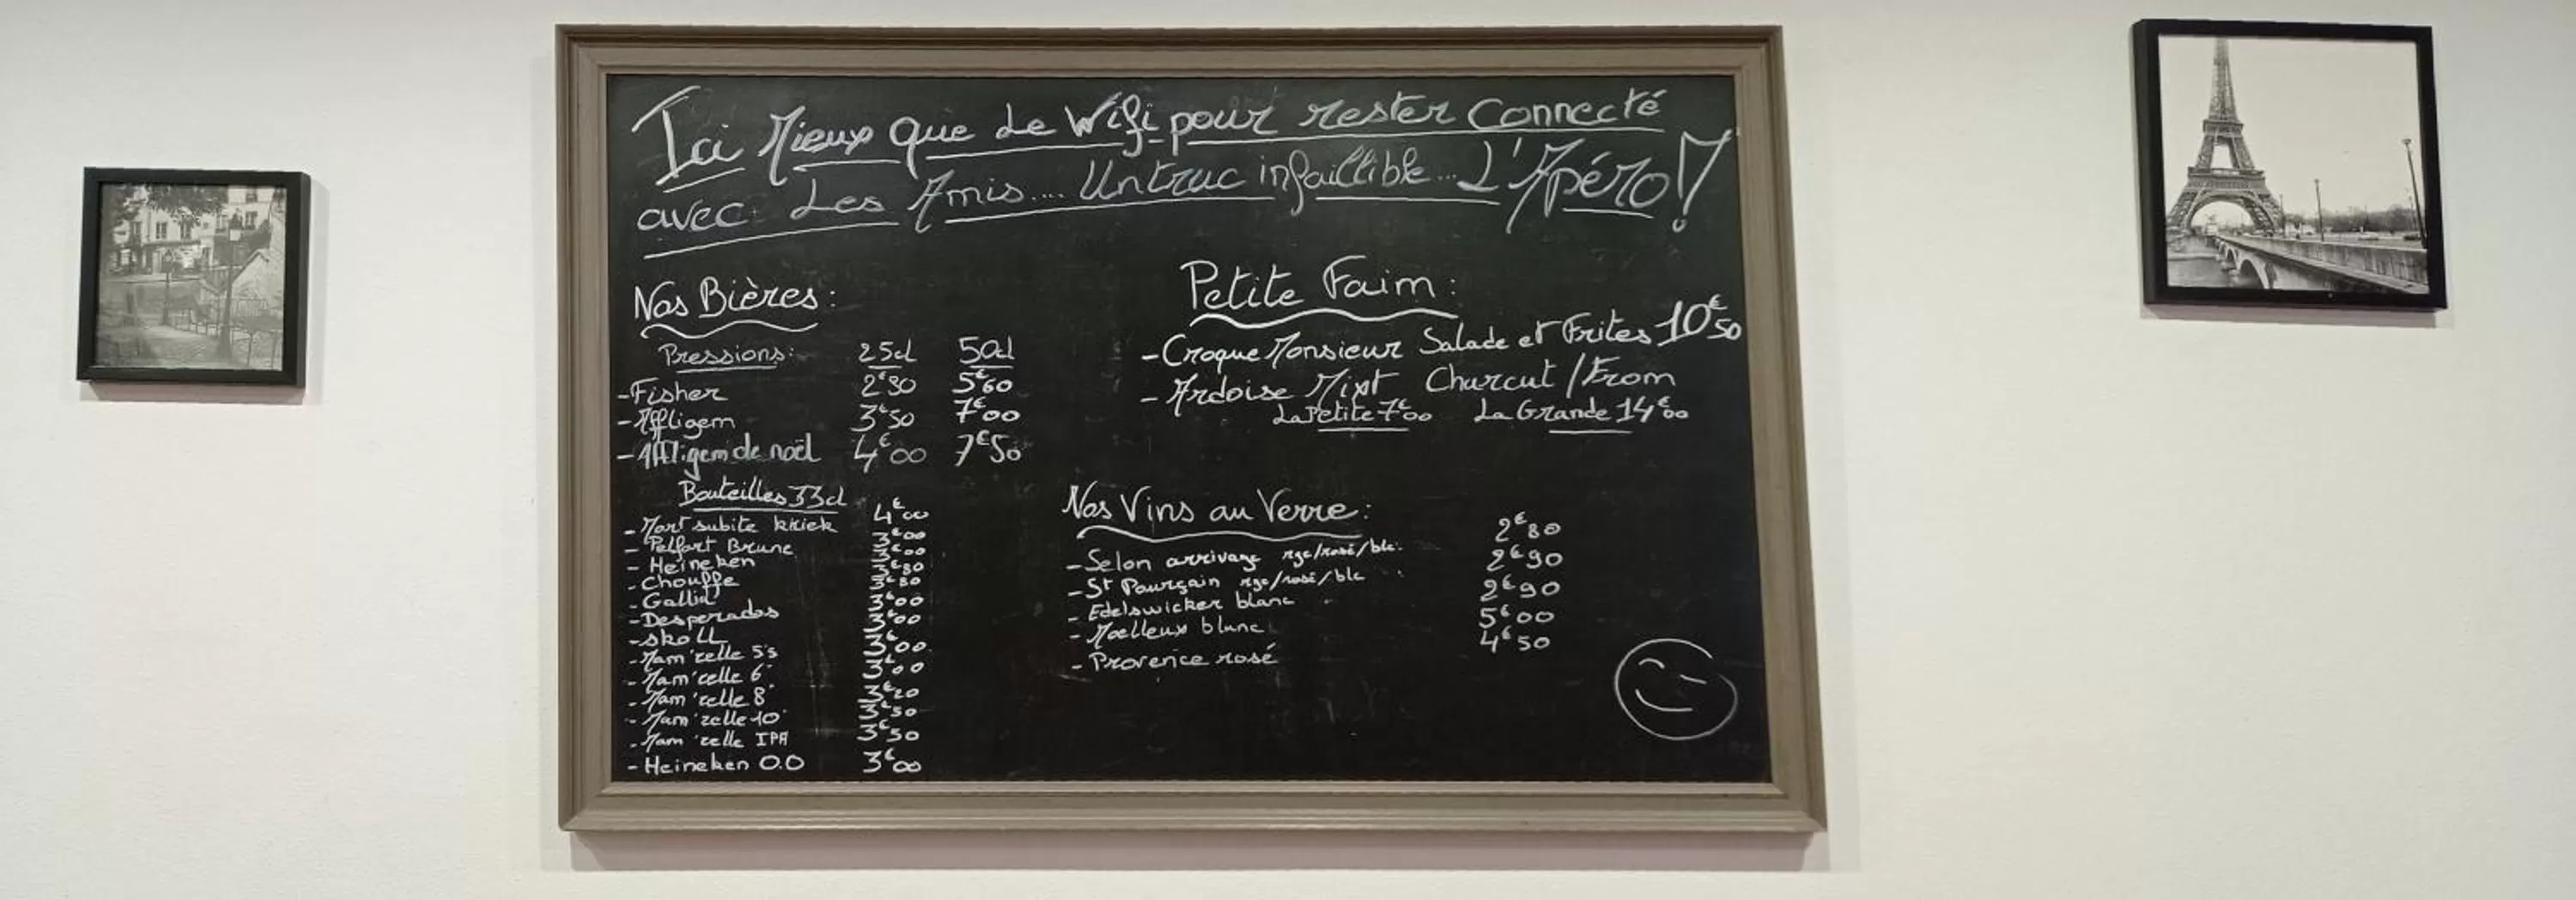 Ici Mieux que Le Wifi pour rester connecté
avec Les Amis.... Un truc infaillible... L'Apéro!
Nos Bières:
Pressions: 25cl 50cl
-Fisher 2€80 5€60
-Affligem 3€50 7€00
-Affligem de noël 4€00 7€50
Bouteilles 33cl
- Mort subite kriek 4€00
- Pelfort Brune 3€00
- Heineken 3€00
- Chouffe 3€80
- Gallia 3€80
-Desperados 3€00
-skoll 3€00
-Mam'zelle 5°5 3€00
- Mam'zelle 6° 3€00
- Mam'zelle 8° 3€20
- Mam'zelle 10° 3€50
- Mam'zelle IPA 3€50
- Heineken 0.0 3€00
Petite Faim:
-Croque Monsieur Salade et Frites 10€50
- Ardoise Mixt Charcut/From
La Petite 7€00 La Grande 14€00
Nos Vins au Verre:
-Selon arrivage rge/rosé/blc. 2€80
-St Pourçain rge/rosé/blc 2€90
- Edelswicker blanc 2€90
- Moelleux blanc 5€00
- Provence rosé 4€50